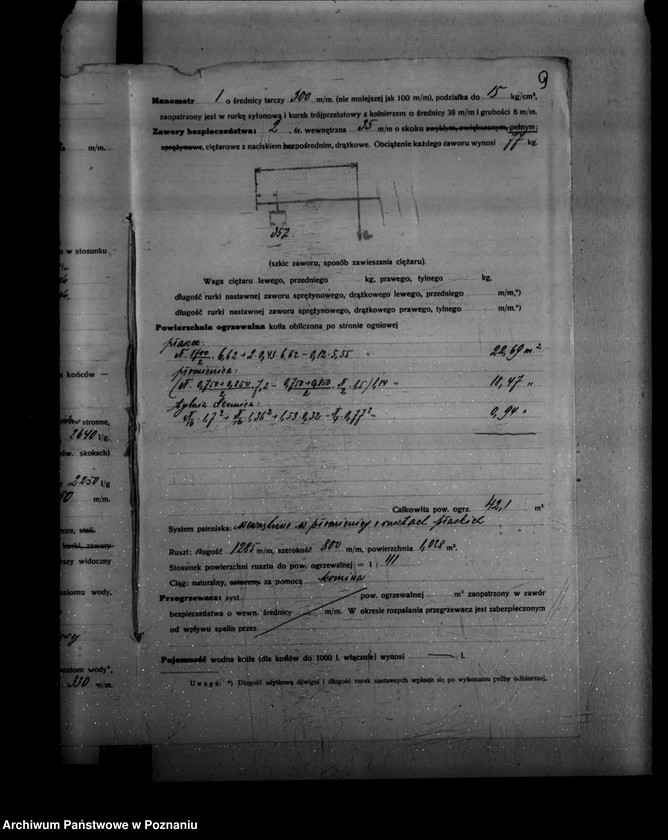 9
Manometr 1 o średnicy tarczy 300 m/m. (nie mniejszej jak 100 m/m), podziałka do 15 kg/cm²,
zaopatrzony jest w rurkę syfonową i kurek trójprzelotowy z kołnierzem o średnicy 38 m/m i grubości 6 m/m.
Zawory bezpieczeństwa: 2 , śr. wewnętrzna 35 m/m o skoku zwykłym, zwiększonym, pełnym;
sprężynowe, ciężarowe z naciskiem bezpośrednim, drążkowe. Obciążenie każdego zaworu wynosi 77 kg.
357
(szkic zaworu, sposób zawieszania ciężaru).
Waga ciężaru lewego, przedniego kg, prawego, tylnego kg,
długość rurki nastawnej zaworu sprężynowego, drążkowego lewego, przedniego m/m,*)
długość rurki nastawnej zaworu sprężynowego, drążkowego prawego, tylnego m/m.*)
Powierzchnia ogrzewalna kotła obliczona po stronie ogniowej
6,62 + 2·0,43·6,62 – 0,12·5,55 22,69 m²
płomienica:
18,47 "
tylna dennica:
0,94 "
Całkowita pow. ogrz. 42,1 m²
System paleniska: wewnętrzne w płomienicy o rusztach płaskich
Ruszt: długość 1285 m/m, szerokość 800 m/m, powierzchnia 1,028 m².
Stosunek powierzchni rusztu do pow. ogrzewalnej = 1 : 41
Ciąg: naturalny, sztuczny za pomocą komina
Przegrzewacz: syst. pow. ogrzewalnej m² zaopatrzony w zawór
bezpieczeństwa o wewn. średnicy m/m. W okresie rozpalania przegrzewacz jest zabezpieczonym
od wpływu spalin przez
Pojemność wodna kotła (dla kotłów do 1000 l. włącznie) wynosi — l.
Uwaga: *) Długość użytkową dźwigni i długość rurek nastawnych wpisuje się po wykonaniu próby odbiorczej.
m/m.
u w stosunku
a końców —
stronne,
2640 l/g.
dw. skokach)
2250 l/g
m/m.
szy widoczny
oziomu wody,
oziom wody",
330 m/m.
Archiwum Państwowe w Poznaniu